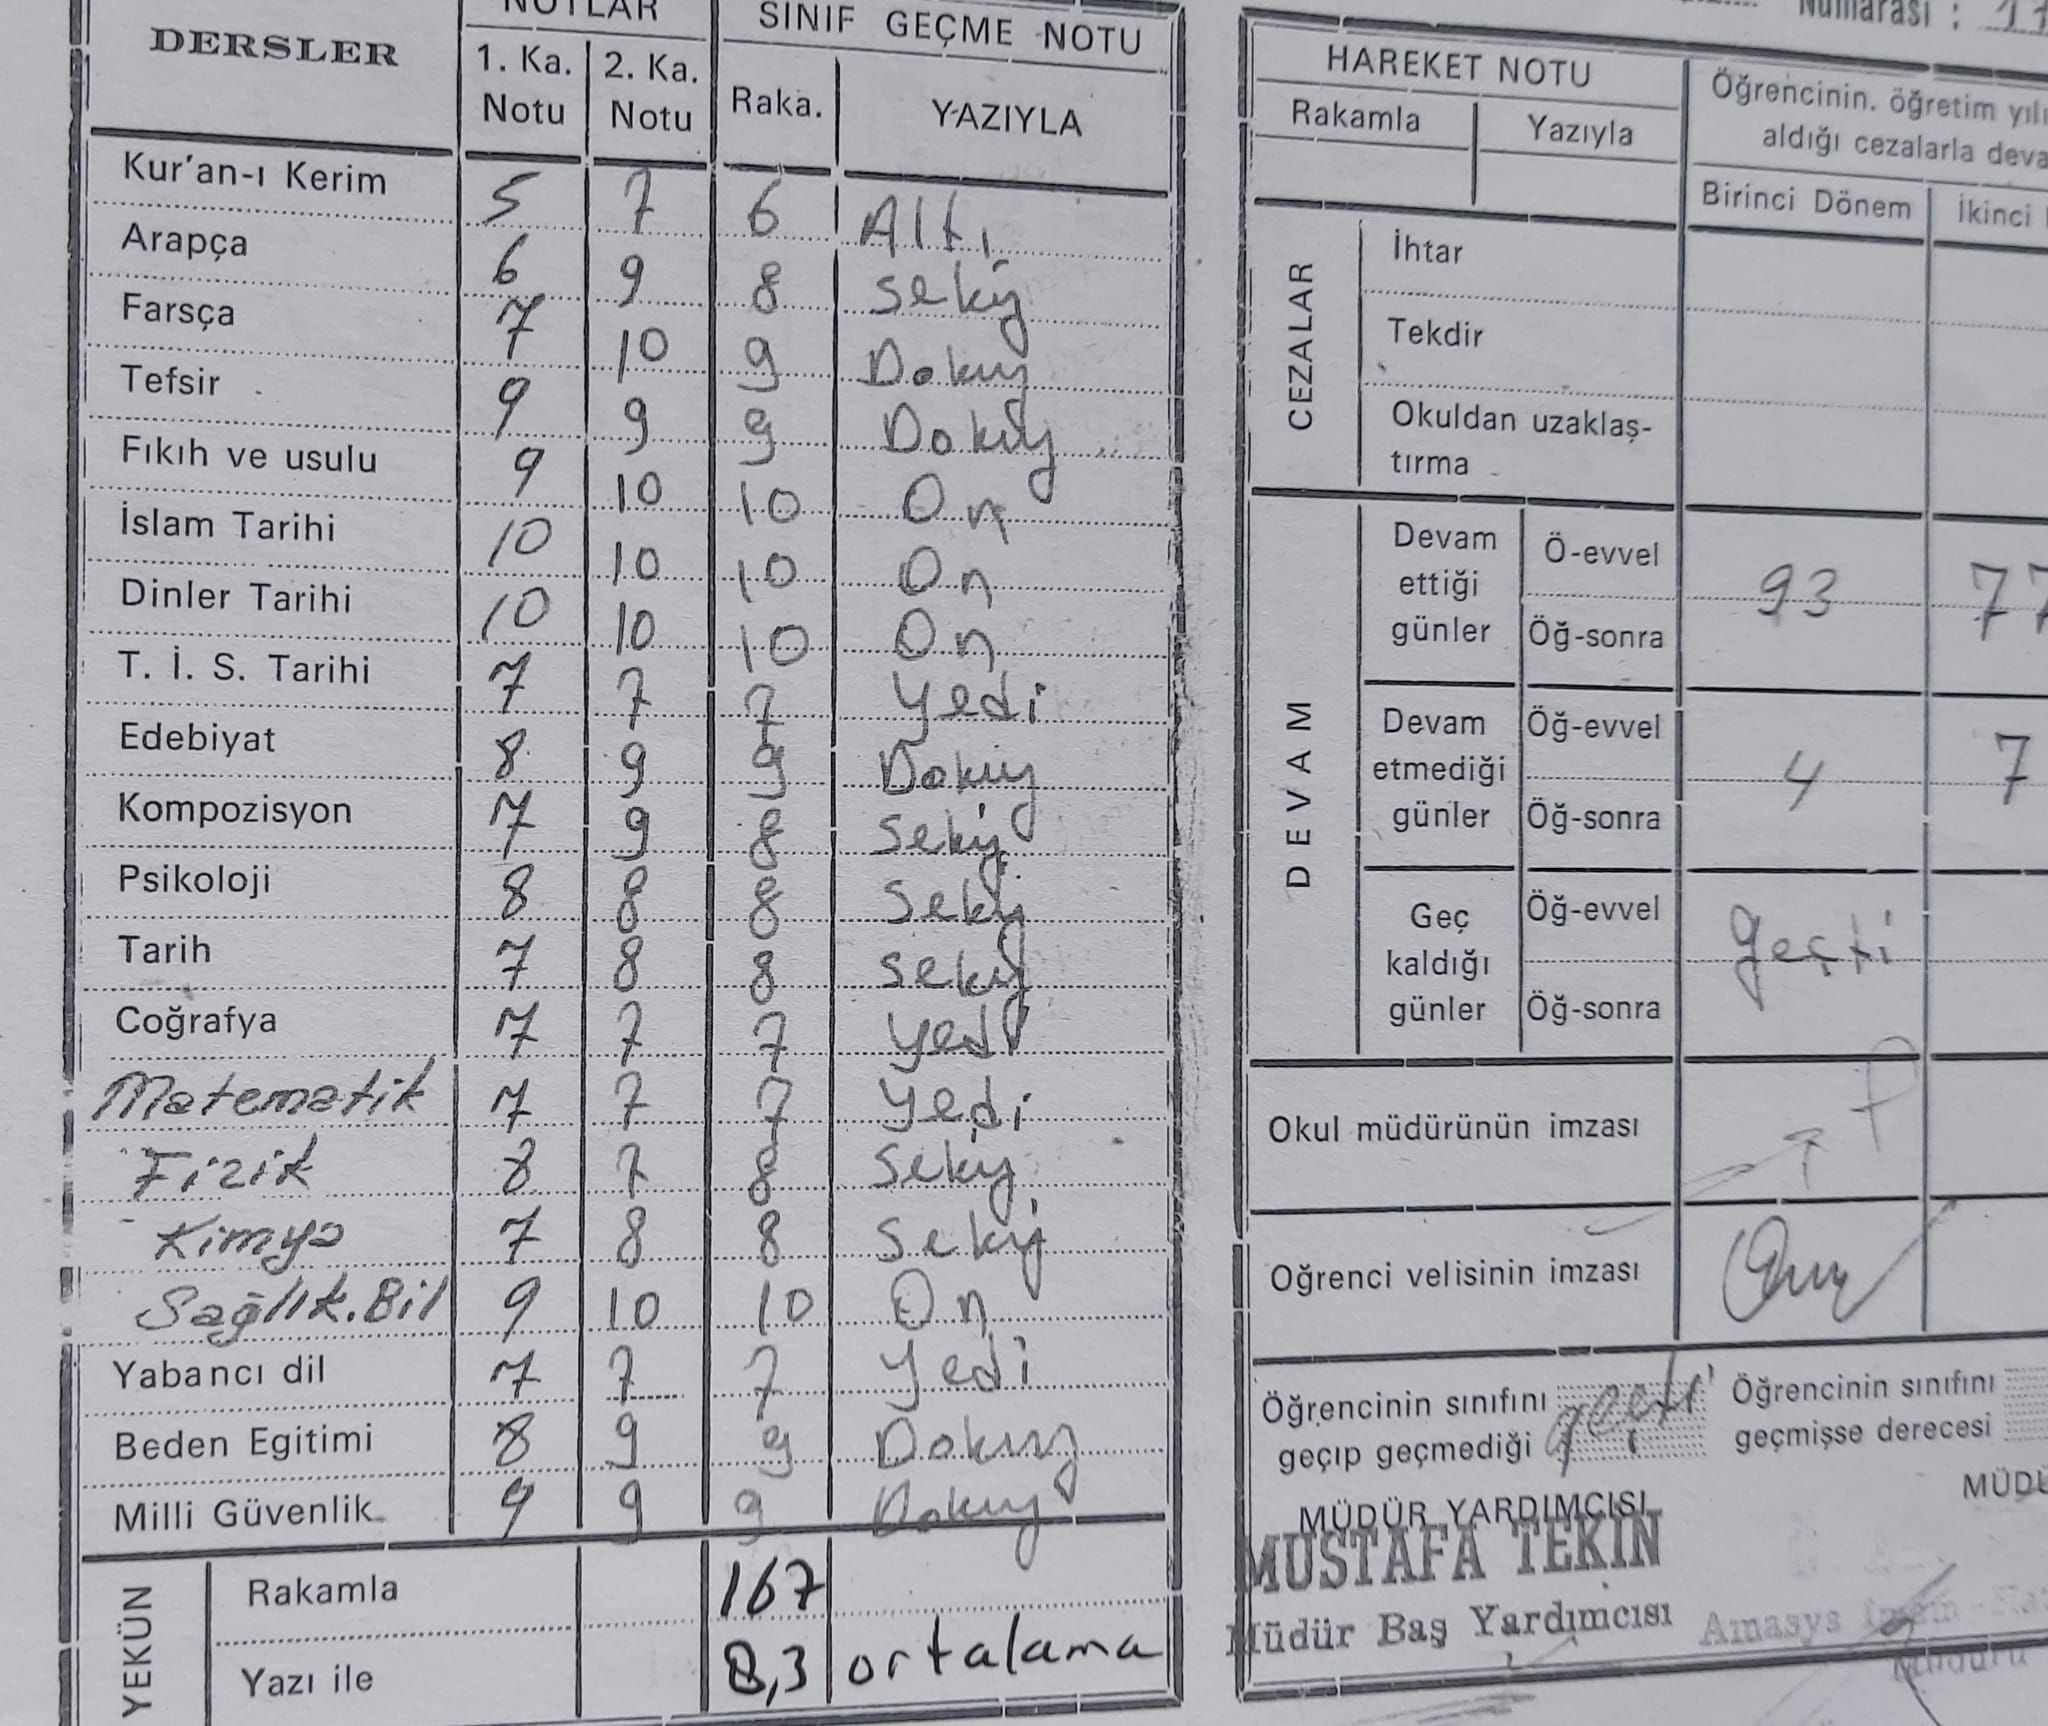 DERSLER NOTLAR SINIF GEÇME NOTU
1. Ka. Notu 2. Ka. Notu Raka. YAZIYLA
Kur'an-ı Kerim 5 7 6 Altı
Arapça 6 9 8 sekiz
Farsça 7 10 9 Dokuz
Tefsir 9 9 9 Dokuz
Fıkıh ve usulu 9 10 10 On
İslam Tarihi 10 10 10 On
Dinler Tarihi 10 10 10 On
T. İ. S. Tarihi 7 7 7 yedi
Edebiyat 8 9 9 Dokuz
Kompozisyon 7 9 8 sekiz
Psikoloji 8 8 8 sekiz
Tarih 7 8 8 sekiz
Coğrafya 7 7 7 yedi
Matematik 7 7 7 yedi
Fizik 8 7 8 sekiz
Kimya 7 8 8 sekiz
Sağlık.Bil 9 10 10 On
Yabancı dil 7 7 7 yedi
Beden Egitimi 8 9 9 Dokuz
Milli Güvenlik 9 9 9 Dokuz
YEKÜN
Rakamla 167
Yazı ile 8,3 ortalama
Numarası : 11
HAREKET NOTU
Rakamla Yazıyla
Öğrencinin. öğretim yılı
aldığı cezalarla deva
Birinci Dönem İkinci
CEZALAR
İhtar
Tekdir
Okuldan uzaklaş-
tırma
DEVAM
Devam ettiği günler
Ö-evvel 93 77
Öğ-sonra
Devam etmediği günler
Öğ-evvel 4 7
Öğ-sonra
Geç kaldığı günler
Öğ-evvel geçti
Öğ-sonra
Okul müdürünün imzası
Oğrenci velisinin imzası
Öğrencinin sınıfını geçti Öğrencinin sınıfını
geçıp geçmediği geçmişse derecesi
MÜDÜR YARDIMCISI MÜDÜ
MUSTAFA TEKIN
Müdür Baş Yardımcısı Amasya İmam-Ha
Müdürü